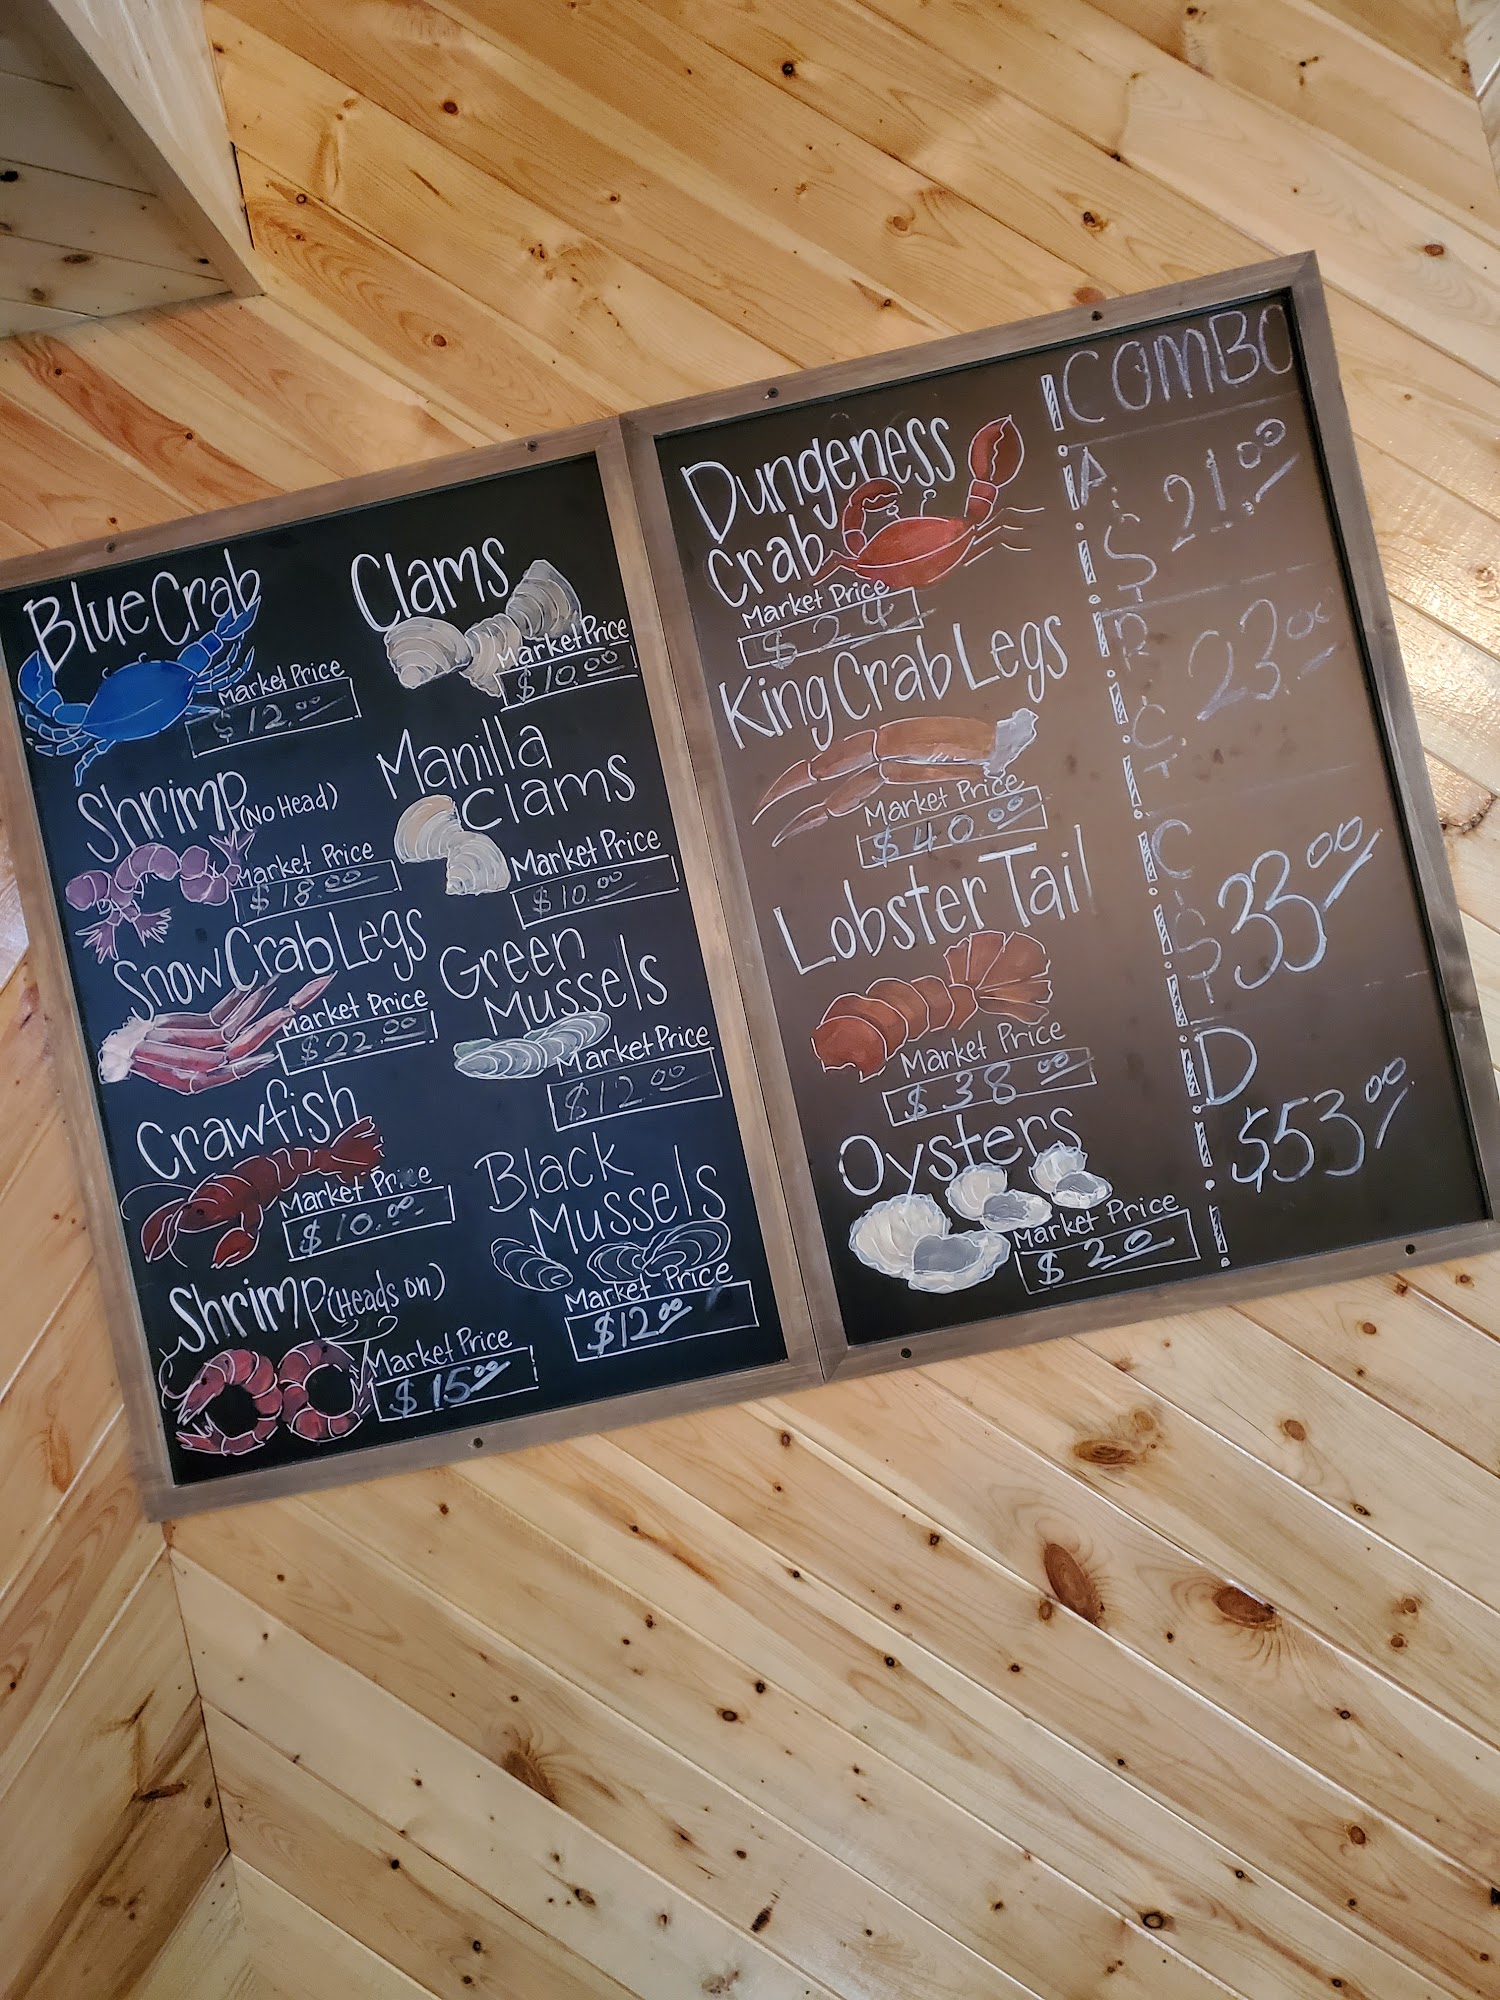 Blue Crab
Market Price
$12.00
Shrimp (No Head)
Market Price
$18.00
Snow Crab Legs
Market Price
$22.00
Crawfish
Market Price
$10.00
Shrimp (Heads on)
Market Price
$15.00
Clams
Market Price
$10.00
Manilla
Clams
Market Price
$10.00
Green
Mussels
Market Price
$12.00
Black
Mussels
Market Price
$12.00
Dungeness
Crab
Market Price
$24
King Crab Legs
Market Price
$40.00
Lobster Tail
Market Price
$38.00
Oysters
Market Price
$20
COMBO
A.
21.00
23.00
C
33.00
D
$53.00